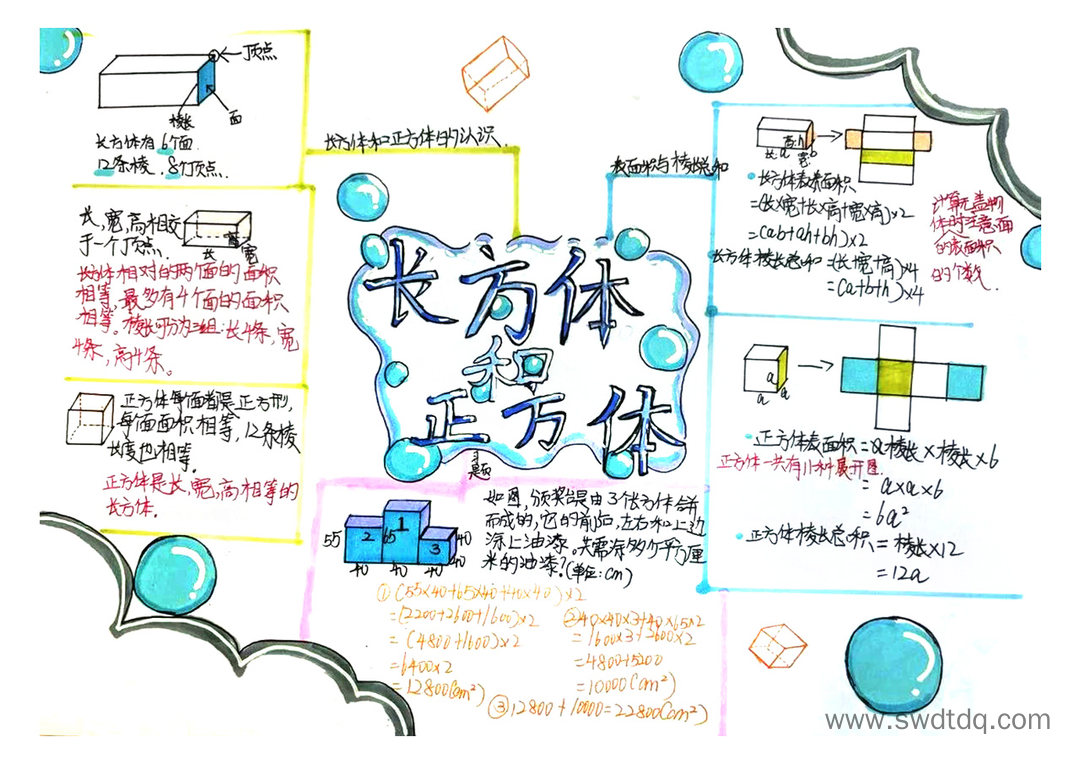 顶点
棱长
面
长方体有6个面.
12条棱.8个顶点.
长方体和正方体的认识.
长,宽,高相交
于一个顶点.
长
高
宽
长方体相对的两个面的面积
相等,最多有4个面的面积
相等。棱长可分为三组:长4条,宽
4条,高4条。
正方体每面都是正方形,
每面面积相等,12条棱
长度也相等.
正方体是长,宽,高相等的
长方体.
长方体
和
正方体
表面积与棱长总和
长a
宽b
高h
长方体表面积
=(长×宽+长×高+宽×高)×2
=(ab+ah+bh)×2
长方体棱长总和=(长+宽+高)×4
=(a+b+h)×4
计算无盖物
体时注意面
的表面积
的个数.
a
a
a
正方体表面积=棱长×棱长×6
正方体一共有11种展开图.
=a×a×6
=6a²
正方体棱长总和=棱长×12
=12a
题
如图,颁奖台是由3个长方体合并
而成的,它的前后,左右和上边
涂上油漆。共需涂多少平方厘
米的油漆?(单位:cm)
55
2
65
1
3
40
40
40
40
40
①(55×40+65×40+40×40)×2
=(2200+2600+1600)×2
=(4800+1600)×2
=6400×2
=12800(cm²)
②40×40×3+40×65×2
=1600×3+2600×2
=4800+5200
=10000(cm²)
③12800+10000=22800(cm²)
www.swdtdq.com